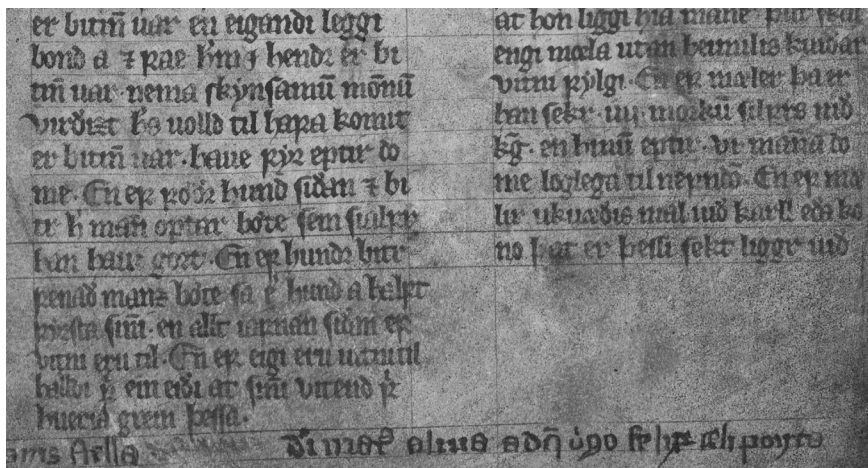 er bitiñ uar en eigandi leggi
bond a ⁊ fae hinū hendr er bi
tiñ uar. nema skynsamū mōnū
virðizt h̄s uolld til hafa komit
er bitiñ uar. haue fyr eptir do
me. En ef fǫðr hund siðan ⁊ bi
tr h̄ man optar bøte sem sialfr
han haue gort. En ef hundr bitr
fenað manz bøte sa ē hund a halft
fyrsta siñi. en allt iafnan siðan ef
vitni eru til. En ef eigi eru uitni til
halldi f̄ ein eiði at siñi vitend f̄
hueria grein þessa.
at hon liggi hia mane
engi mæla utan heimilis kuiðar
vitni fylgi. En ef mæler þa er
han sekr. iiij. morkū silfrs uið
kḡ. en hinū eptir. vi mana do
me loglega til nefndū. En ef mæ
lir ukuæðis mál uið karll eða ko
no þat er þessi sekt liggr uið